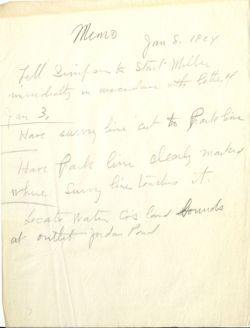 Memo
Jan 5. 1924
Tell Simpson to Start Miller
immediately in accordance with letter of
Jan 3,
Have survey line cut to Park line
Have Park line clearly marked
where survey line touches it.
Locate Water Co's land bounds
at outlet Jordan Pond